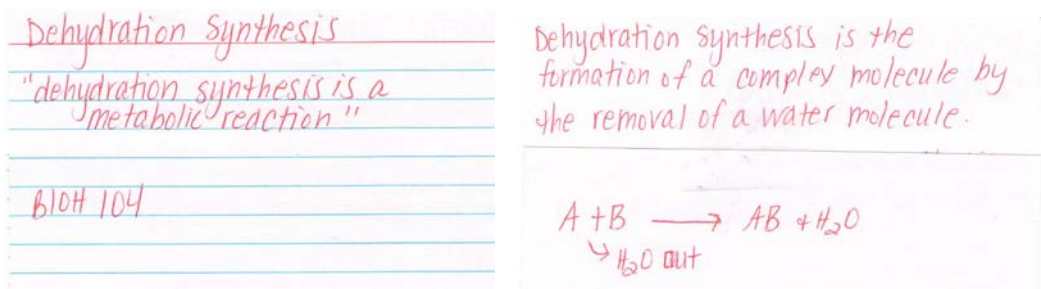 Dehydration Synthesis
"dehydration synthesis is a
metabolic reaction"
BIOH 104
Dehydration Synthesis is the
formation of a complex molecule by
the removal of a water molecule.
A + B ⟶ AB + H₂O
↳ H₂O out